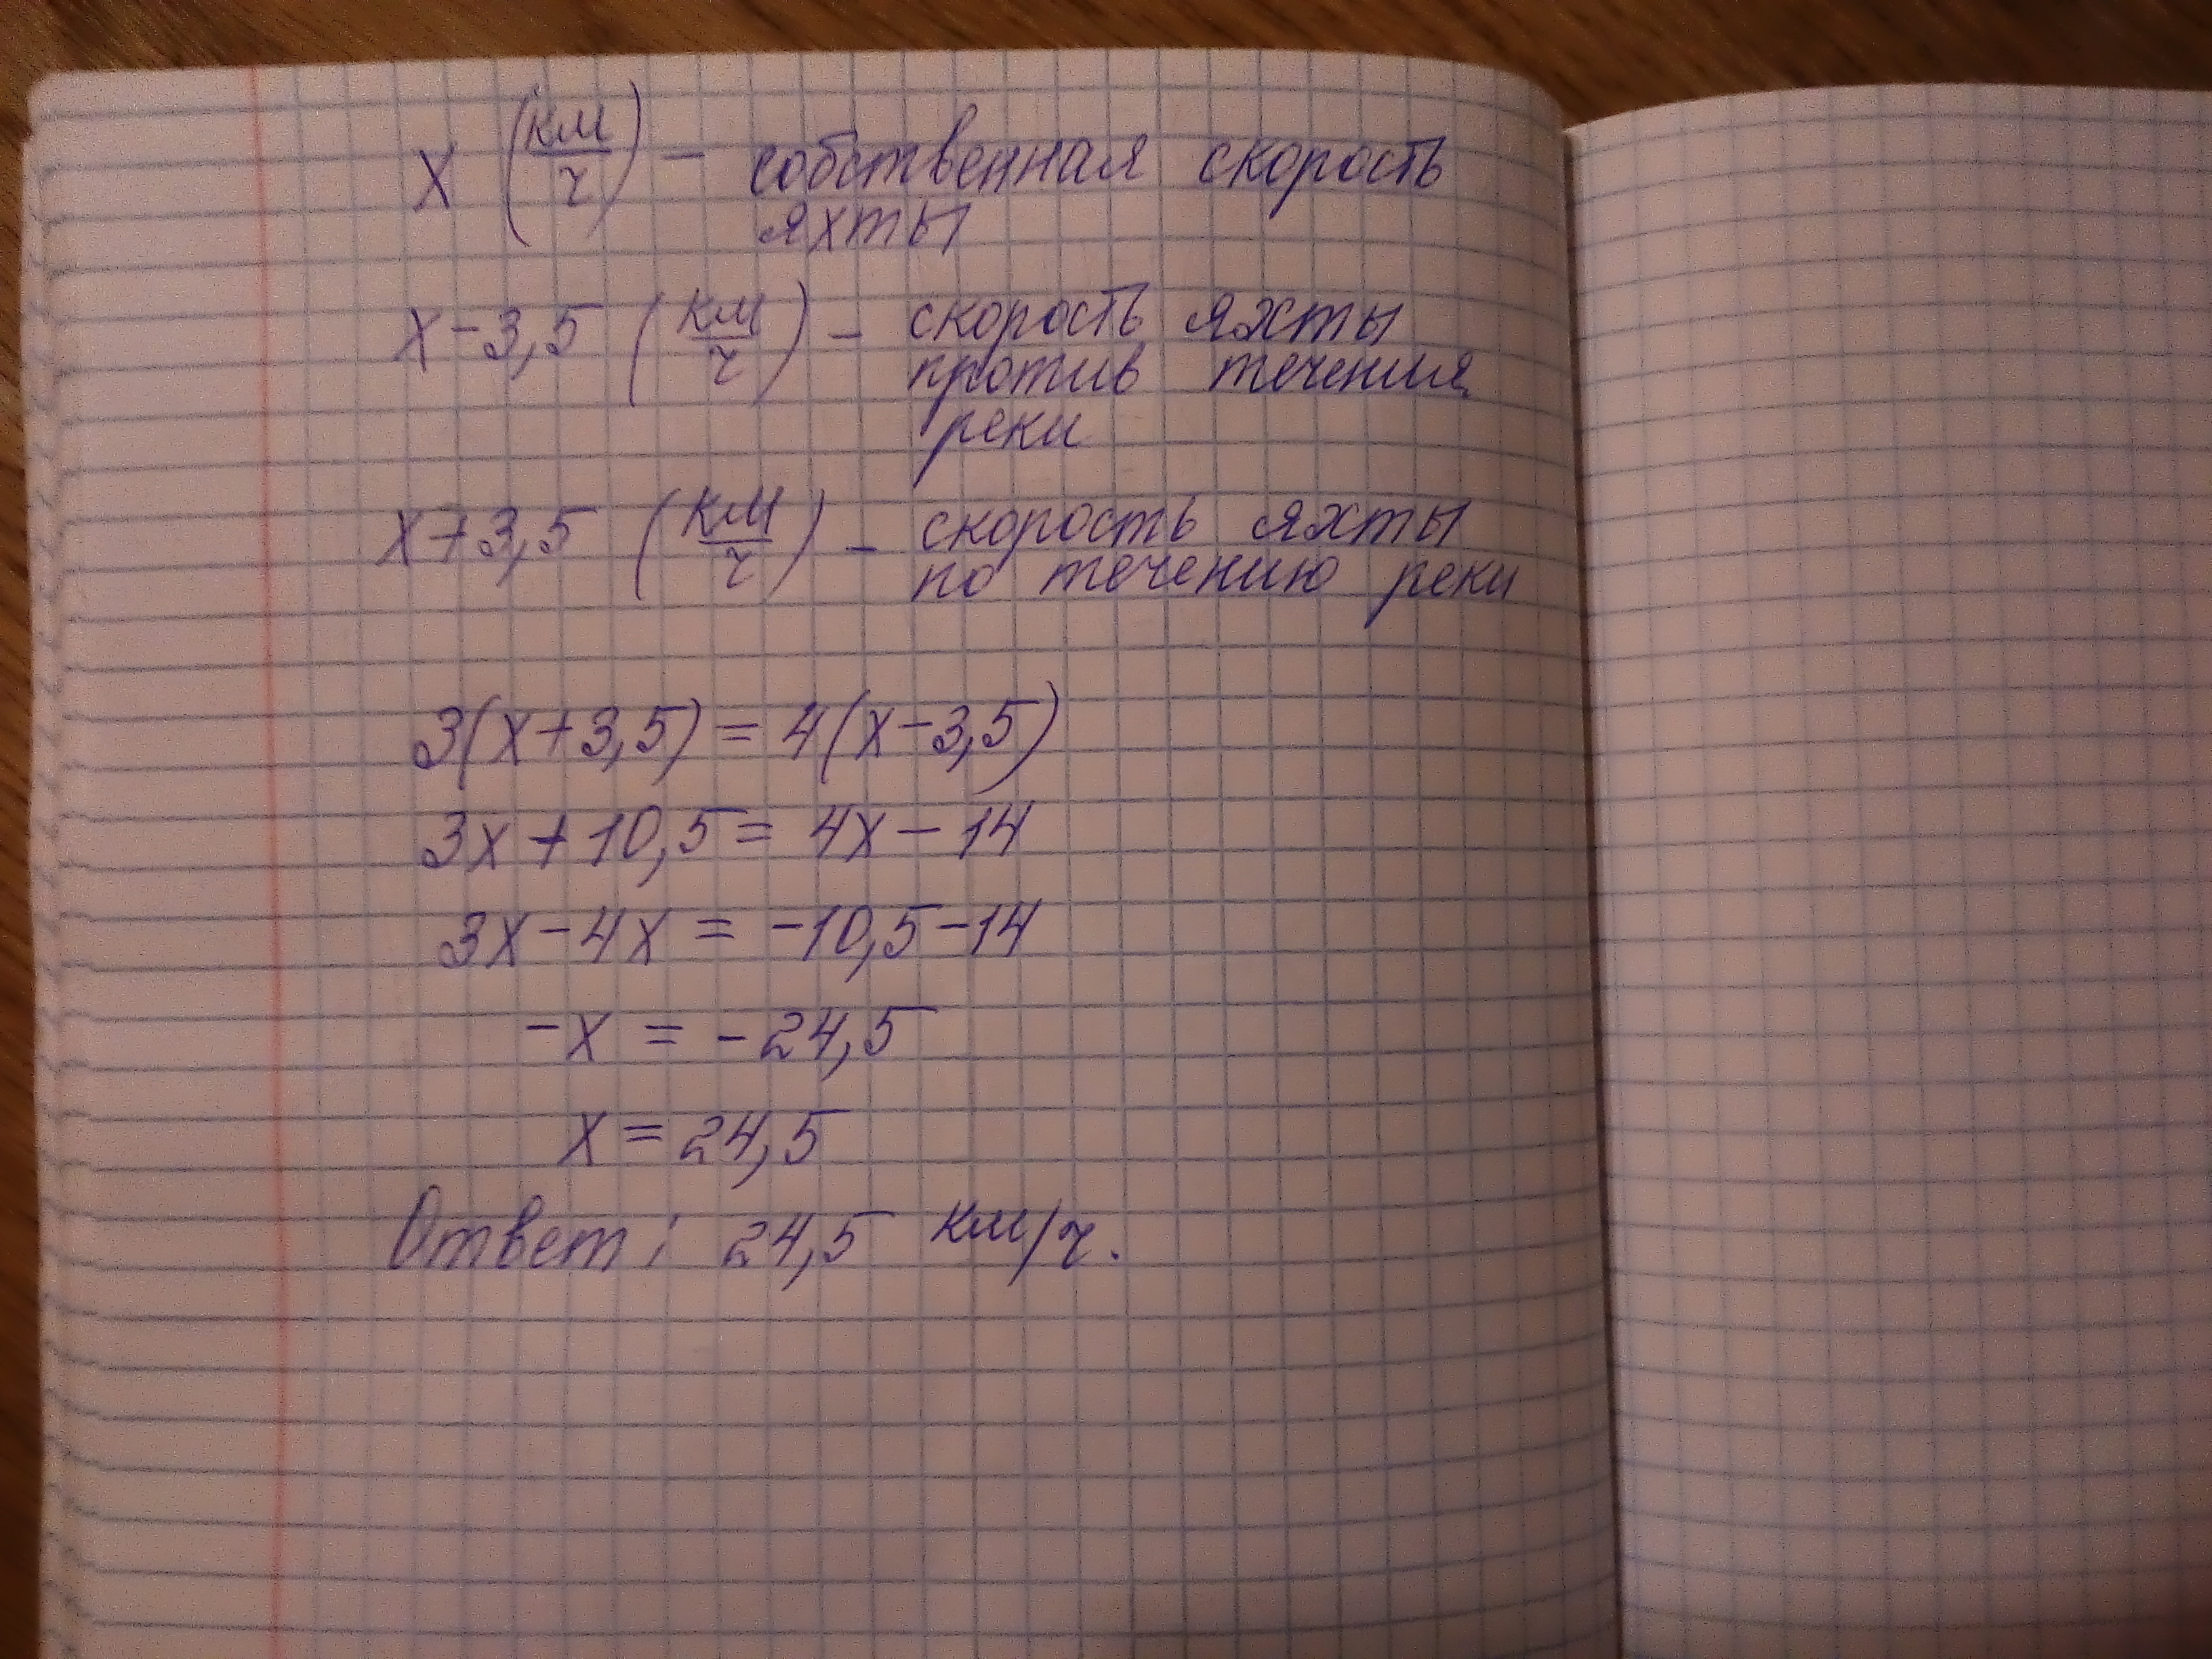 x (км/ч) – собственная скорость
яхты
x – 3,5 (км/ч) – скорость яхты
против течения
реки
x + 3,5 (км/ч) – скорость яхты
по течению реки
3(x + 3,5) = 4(x – 3,5)
3x + 10,5 = 4x – 14
3x – 4x = –10,5 – 14
–x = –24,5
x = 24,5
Ответ: 24,5 км/ч.